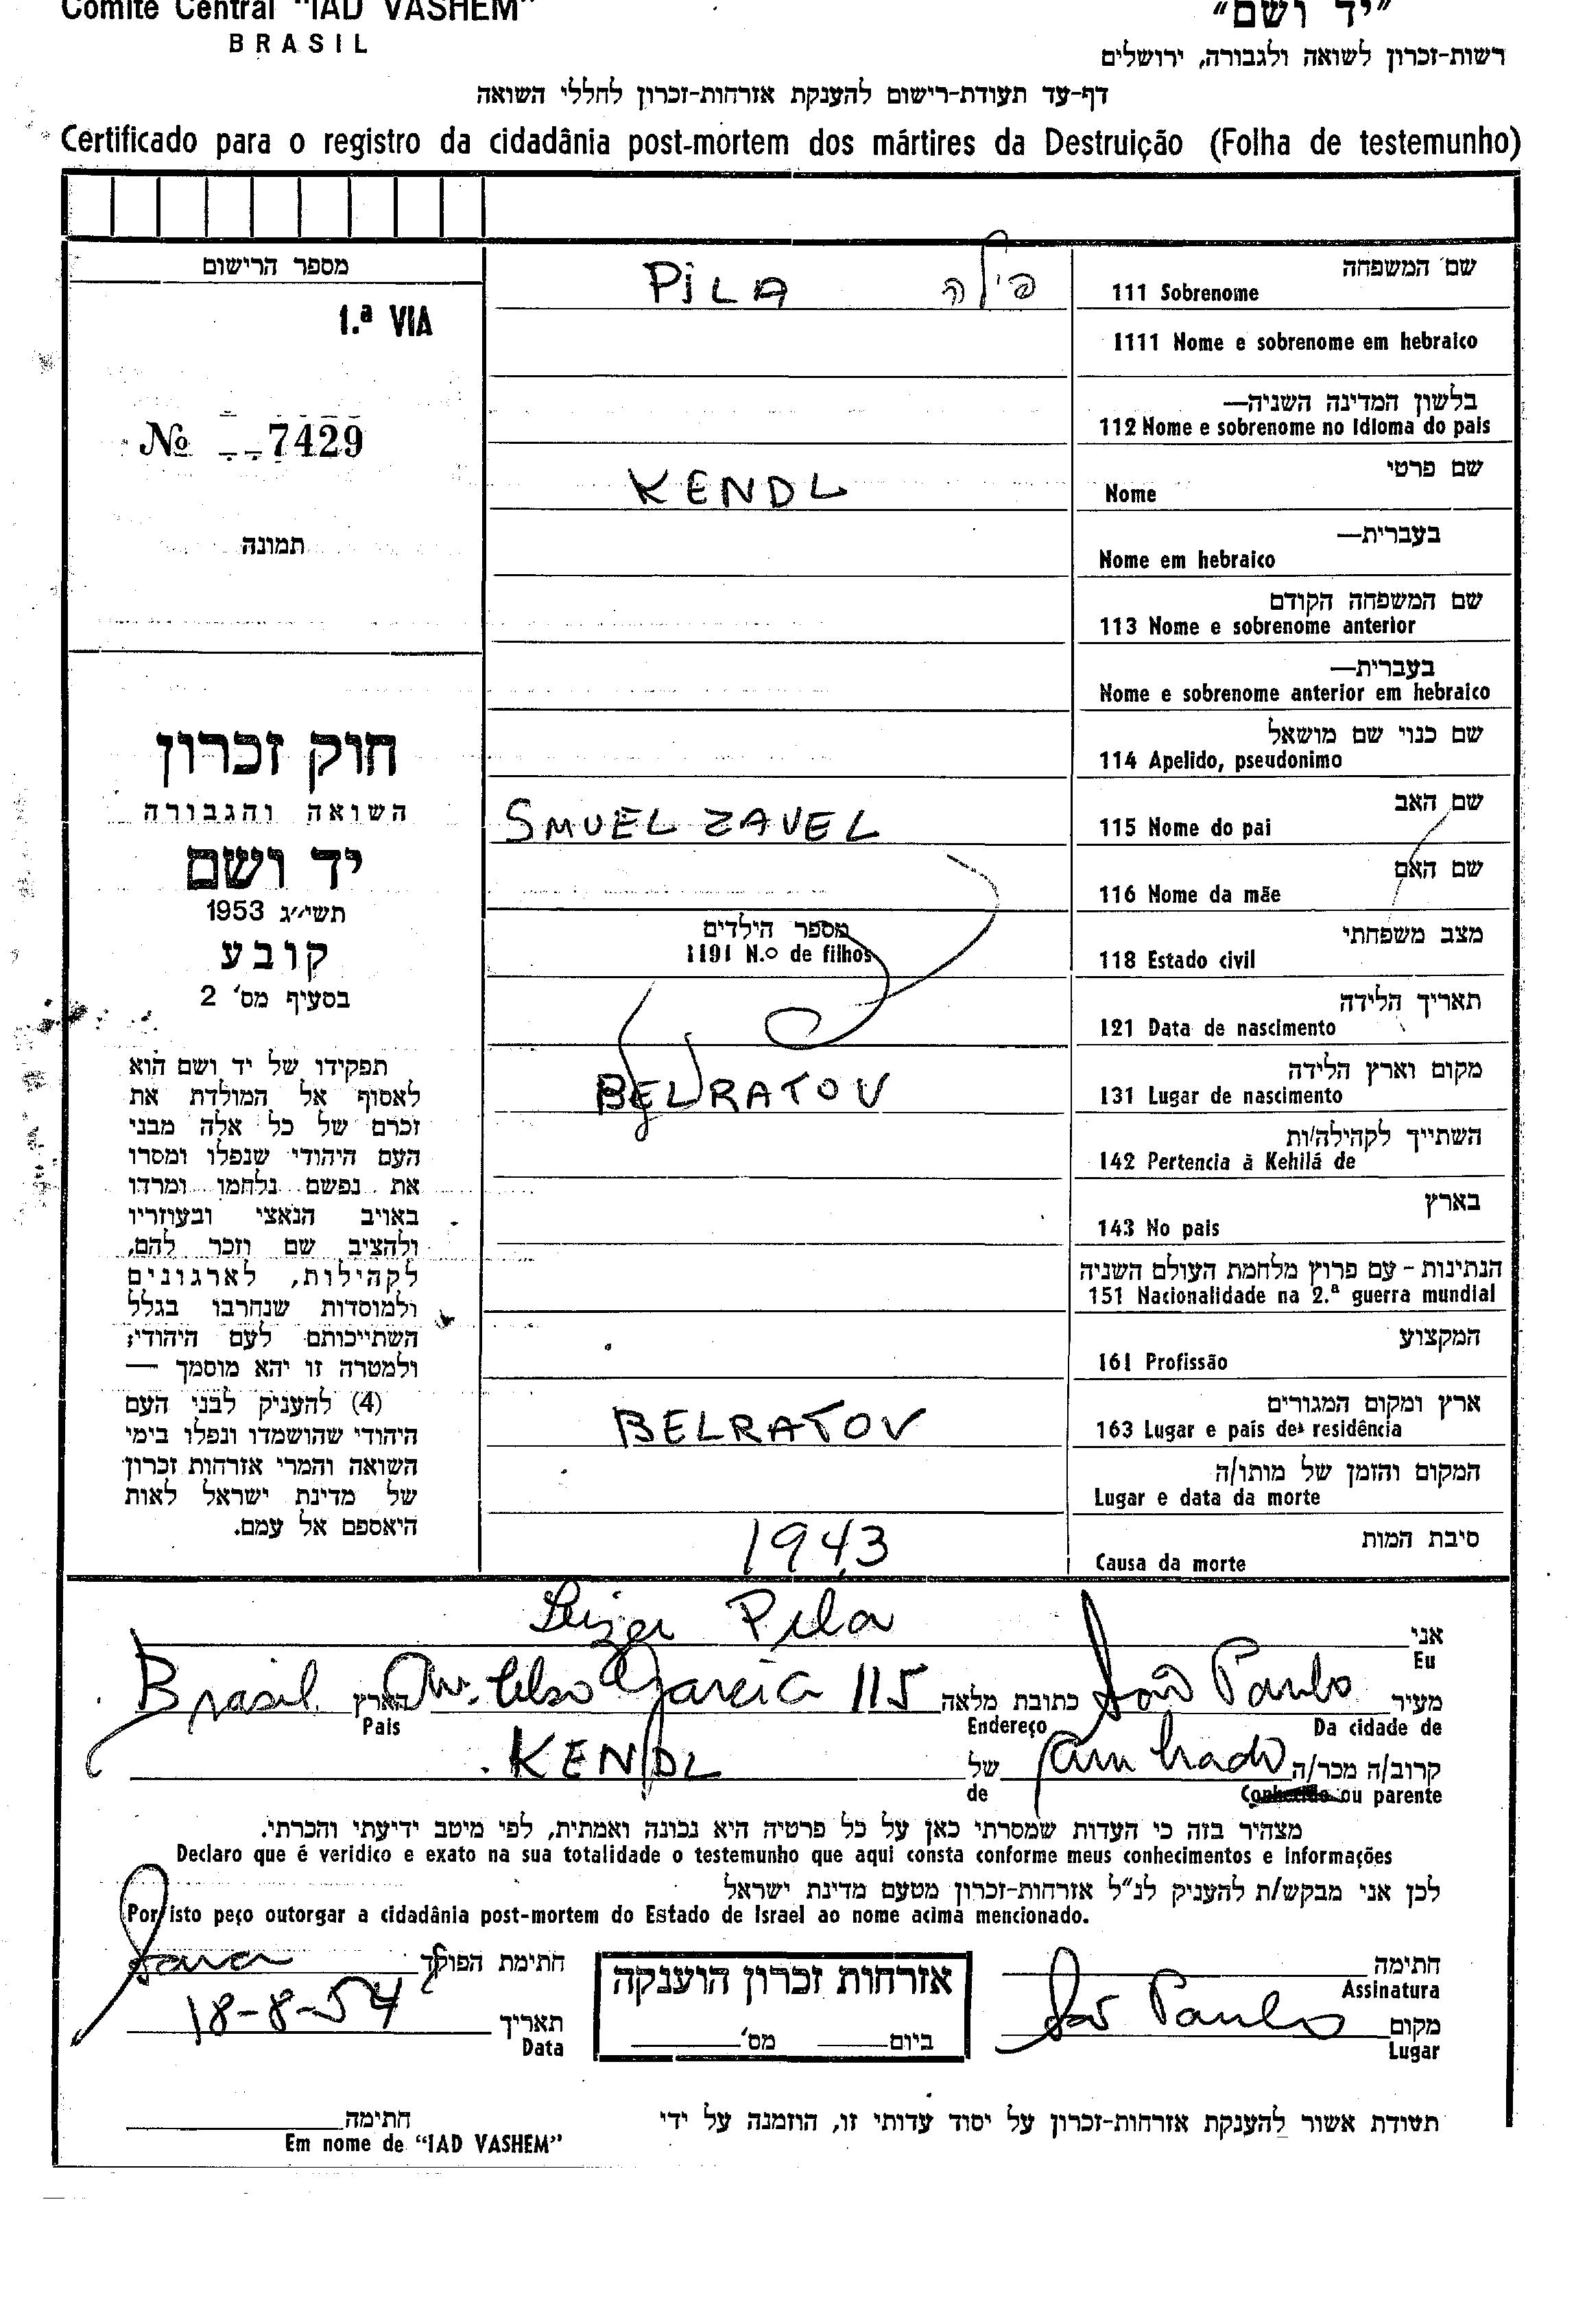 Comite Central "IAD VASHEM"
BRASIL
"יד ושם"
רשות-זכרון לשואה ולגבורה, ירושלים
דף-עד תעודת-רישום להענקת אזרחות-זכרון לחללי השואה
Certificado para o registro da cidadânia post-mortem dos mártires da Destruição (Folha de testemunho)
מספר הרישום
1.ª VIA
No 7429
תמונה
חוק זכרון
השואה והגבורה
יד ושם
תשי״ג 1953
קובע
בסעיף מס' 2
תפקידו של יד ושם הוא
לאסוף אל המולדת את
זכרם של כל אלה מבני
העם היהודי שנפלו ומסרו
את נפשם נלחמו ומרדו
באויב הנאצי ובעוזריו
ולהציב שם וזכר להם,
לקהילות, לארגונים
ולמוסדות שנחרבו בגלל
השתייכותם לעם היהודי;
ולמטרה זו יהא מוסמך —
(4) להעניק לבני העם
היהודי שהושמדו ונפלו בימי
השואה והמרי אזרחות זכרון
של מדינת ישראל לאות
היאספם אל עמם.
שם המשפחה
111 Sobrenome
PILA פילה
1111 Nome e sobrenome em hebraico
בלשון המדינה השניה—
112 Nome e sobrenome no Idioma do pais
שם פרטי
Nome
KENDL
בעברית—
Nome em hebraico
שם המשפחה הקודם
113 Nome e sobrenome anterior
בעברית—
Nome e sobrenome anterior em hebraico
שם כנוי שם מושאל
114 Apelido, pseudonimo
שם האב
115 Nome do pai
SMUEL ZAVEL
שם האם
116 Nome da mãe
מצב משפחתי
118 Estado civil
מספר הילדים
1191 N.o de filhos
תאריך הלידה
121 Data de nascimento
מקום וארץ הלידה
131 Lugar de nascimento
BELRATOV
השתייך לקהילה/ות
142 Pertencia à Kehilá de
בארץ
143 No pais
הנתינות - עם פרוץ מלחמת העולם השניה
151 Nacionalidade na 2.ª guerra mundial
המקצוע
161 Profissão
ארץ ומקום המגורים
163 Lugar e pais de residência
BELRATOV
המקום והזמן של מותו/ה
Lugar e data da morte
סיבת המות
Causa da morte
1943
אני
Eu
Leizer Pila
מעיר São Paulo כתובת מלאה Av. Celso Garcia 115 הארץ Brasil
Da cidade de Endereço Pais
קרוב/ה מכר/ה cunhado של KENDL
Conhecido ou parente de
מצהיר בזה כי העדות שמסרתי כאן על כל פרטיה היא נכונה ואמתית, לפי מיטב ידיעתי והכרתי.
Declaro que é veridico e exato na sua totalidade o testemunho que aqui consta conforme meus conhecimentos e informações
לכן אני מבקש/ת להעניק לנ״ל אזרחות-זכרון מטעם מדינת ישראל
Por isto peço outorgar a cidadânia post-mortem do Estado de Israel ao nome acima mencionado.
חתימה
Assinatura
חתימת הפוקד Sara
מקום São Paulo
Lugar
תאריך 18-8-54
Data
אזרחות זכרון הוענקה
ביום מס'
תעודת אשור להענקת אזרחות-זכרון על יסוד עדותי זו, הוזמנה על ידי
חתימה
Em nome de "IAD VASHEM"